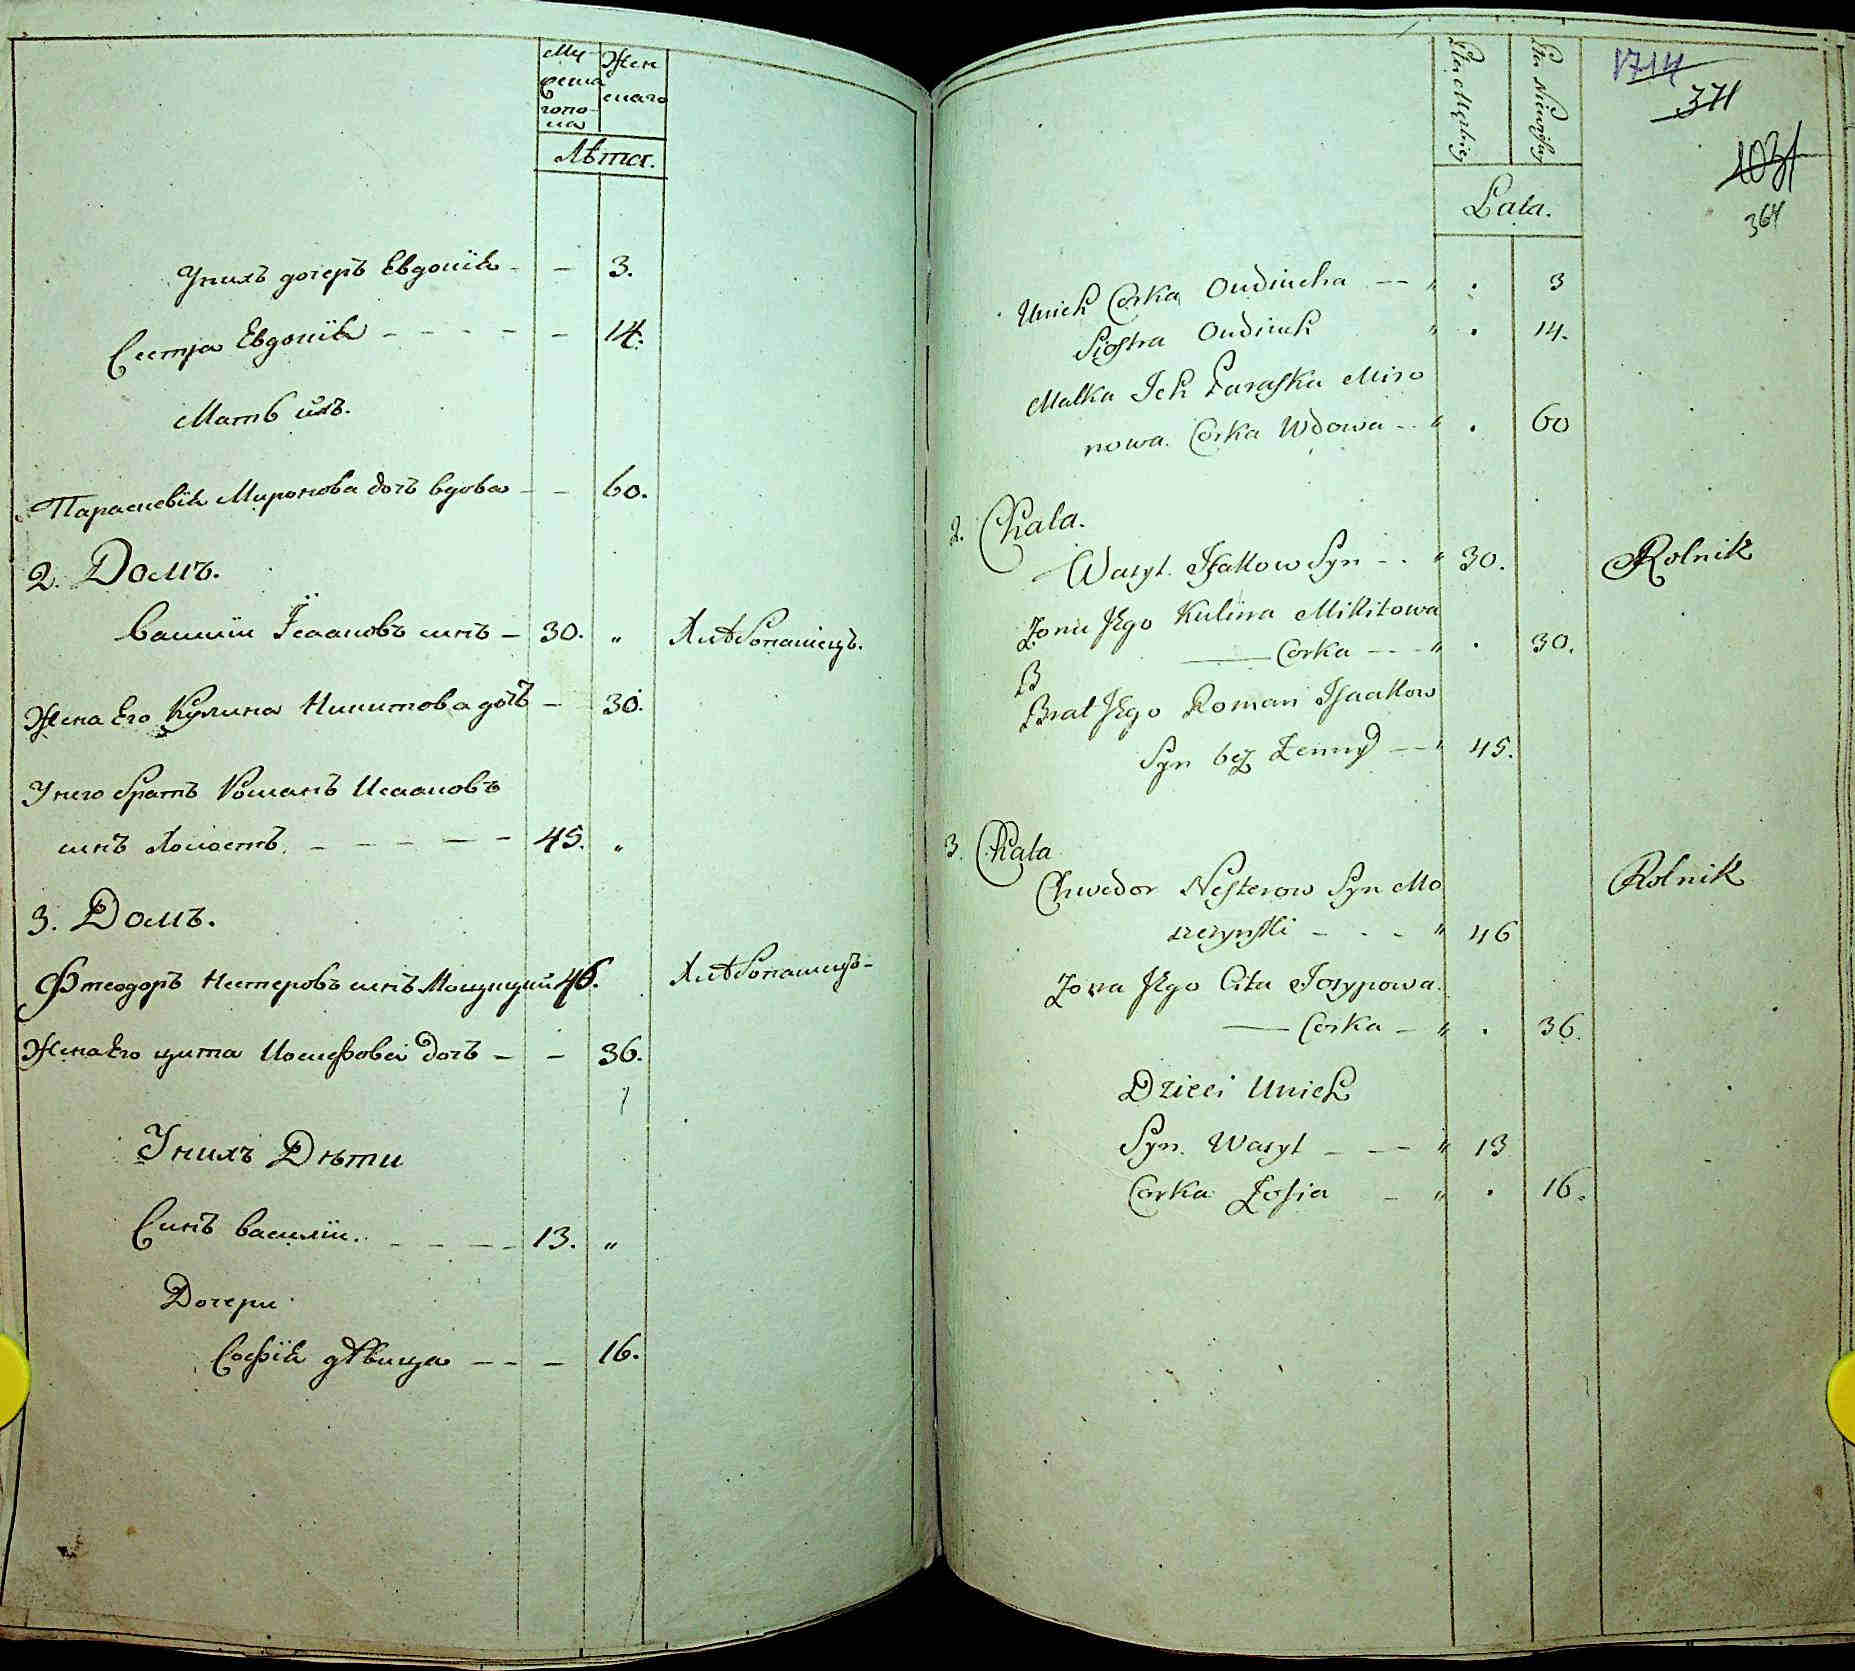 Му-
жеска
го по-
ла
Жен
скаго
Лѣта.
У нихъ дочерь Евдокія - - 3.
Сестра Евдокія - - - - - 14.
Мать ихъ.
Параскевія Миронова дочь вдова - - 60.
2. Домъ.
Василій Ісааковъ синъ - 30. „ Хлѣбопашецъ.
Жена Его Кулина Никитова дочъ - 30.
У него братъ Романъ Исааковъ
синъ Холостъ. - - - - - 45. „
3. Домъ.
Фтеодоръ Нестеровъ синъ 46. Хлѣбопашецъ-
Жена Его цита Иосифова дочь - - 36.
У нихъ Дѣти
Синъ Василій. - - - - 13. „
Дочери
Софія дѣвица - - - 16.
Lta Męzkiey
Lta Niewiskiey
Lata.
1714
371
1031
364
Unich Corka Oudiucha - - „ . 3
Siostra Oudiuch „ . 14.
Matka Ich Paraska Miro
nowa. Corka Wdowa - - „ . 60
2. Chata.
Wasyl. Isakow Syn - - „ 30. Rolnik
Zona Jego Kulina Mikitowa
Corka - - - „ . 30.
B
Brat Jego Roman Isaakow
Syn bez Zenny - - „ 45.
3. Chata
Chwedor Nesterow Syn Mo
szczynski - - - „ 46 Rolnik
Zona Jego Cita Josypowa.
Corka - „ . 36.
Dzieci Unich
Syn. Wasyl - - - „ 13
Corka Zosia - „ . 16.